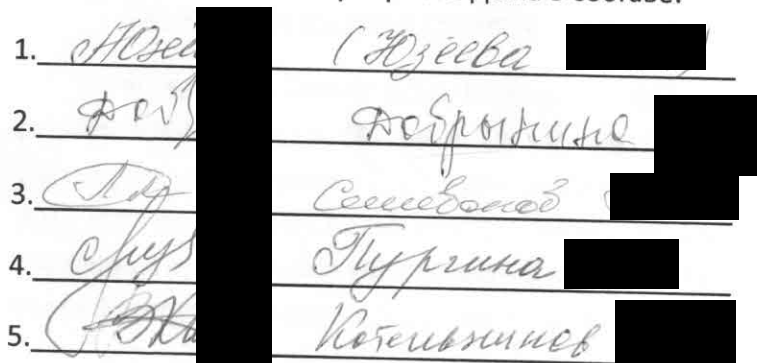 составе.
1. Юзее (Юзеева )
2. Доб Добрынина
3. Селиванов
4. Пургина
5. Котельников